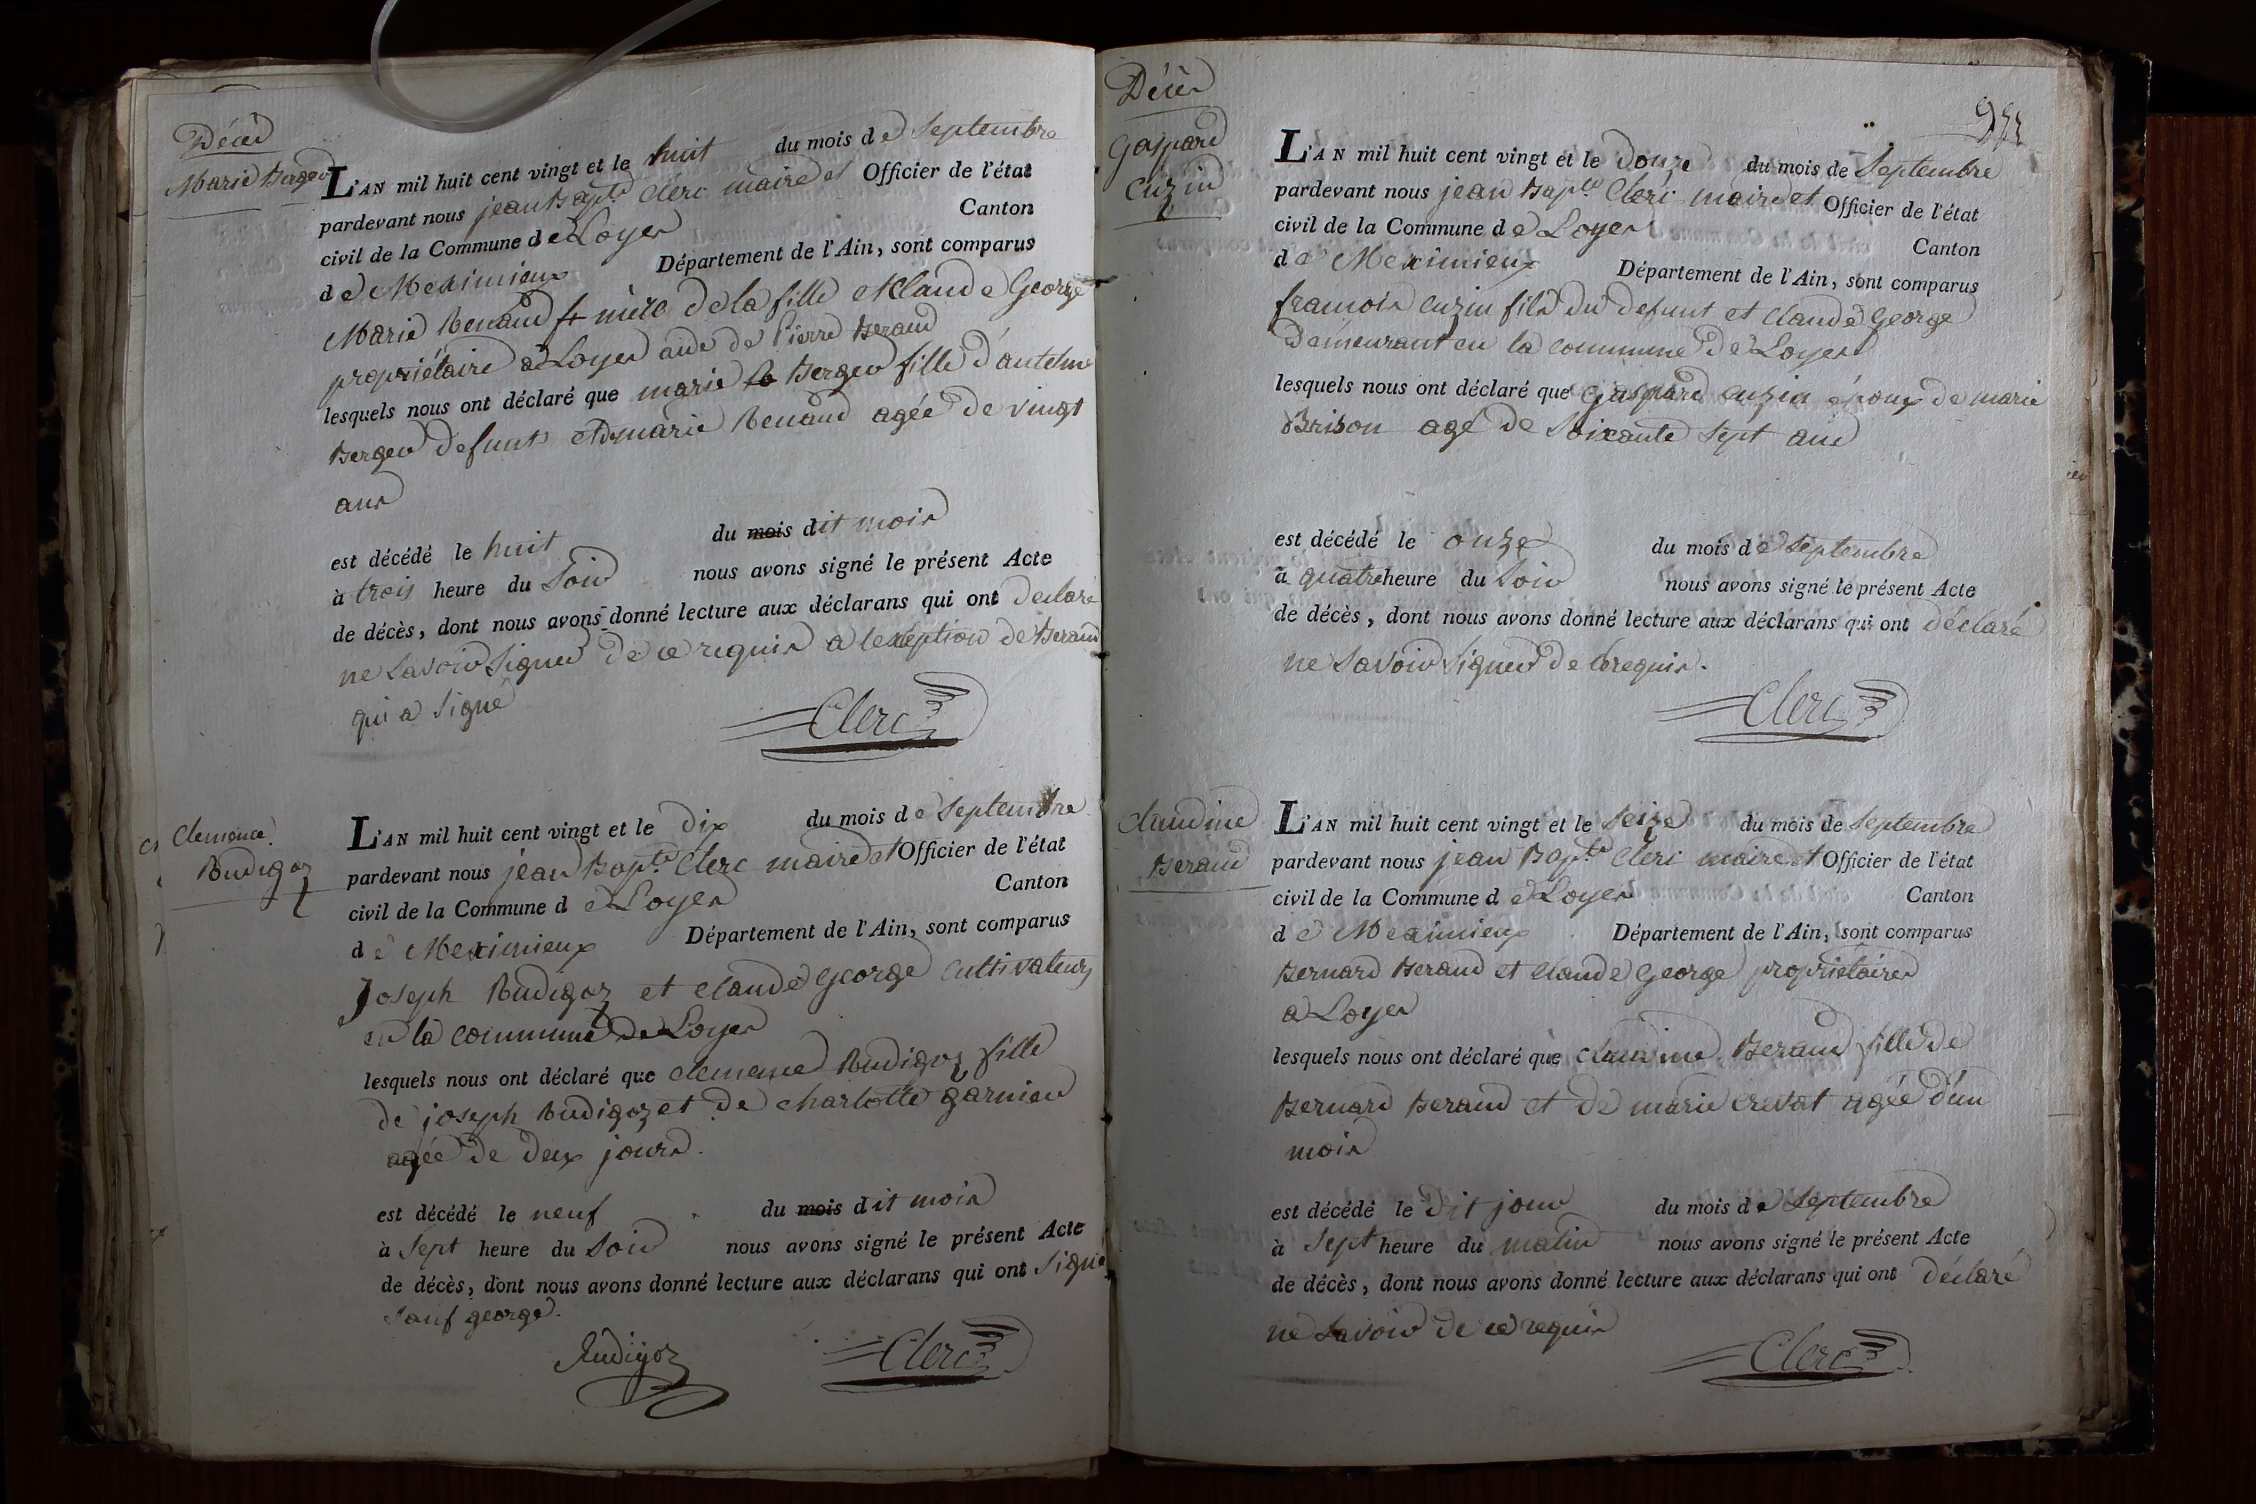 Décès
Marie Berger
L'AN mil huit cent vingt et le huit du mois de Septembre
pardevant nous jean Bapte Clerc maire et Officier de l'état
civil de la Commune de Loyes Canton
de Meximieux Département de l'Ain, sont comparus
Marie Renaud mère de la fille et Claude George
propriétaire a Loyes aidé de Pierre Beraud
lesquels nous ont déclaré que marie Berger fille d'antelme
Berger défunt et de marie Renaud agée de vingt
ans
est décédé le huit du mois dit mois
à trois heure du Soir nous avons signé le présent Acte
de décès, dont nous avons donné lecture aux déclarans qui ont déclaré
ne Savoir Signer de ce requis a lexception de Beraud
qui a Signé
Clerc
Clemence
Rudigoz
L'AN mil huit cent vingt et le dix du mois de Septembre
pardevant nous jean Bapte Clerc maire et Officier de l'état
civil de la Commune de Loyes Canton
de Meximieux Département de l'Ain, sont comparus
Joseph Rudigoz et Claude George cultivateurs
en la commune de Loyes
lesquels nous ont déclaré que clemence Rudigoz fille
de joseph Rudigoz et de charlotte garnier
agée de deux jours.
est décédé le neuf du mois dit mois
à Sept heure du Soir nous avons signé le présent Acte
de décès, dont nous avons donné lecture aux déclarans qui ont Signé
Sauf george.
Rudigoz Clerc
Décès
Gaspard
Cuzin
L'AN mil huit cent vingt et le douze du mois de Septembre
pardevant nous jean Bapte Clerc maire et Officier de l'état
civil de la Commune de Loyes Canton
de Meximieux Département de l'Ain, sont comparus
francois cuzin fils du defunt et claude George
demeurant en la commune de Loyes
lesquels nous ont déclaré que Gaspard cuzin époux de marie
Brison agé de Soixante Sept ans
est décédé le onze du mois de Septembre
à quatre heure du Soir nous avons signé le présent Acte
de décès, dont nous avons donné lecture aux déclarans qui ont déclaré
ne Savoir Signer de ce requis.
Clerc
Claudine
Beraud
L'AN mil huit cent vingt et le Seize du mois de Septembre
pardevant nous jean Bapte Clerc maire et Officier de l'état
civil de la Commune de Loyes Canton
de Meximieux Département de l'Ain, sont comparus
Bernard Beraud et Claude George propriétaires
a Loyes
lesquels nous ont déclaré que claudine Beraud fille de
Bernard Beraud et de marie crevat agée d'un
mois
est décédé le dit jour du mois de Septembre
à Sept heure du matin nous avons signé le présent Acte
de décès, dont nous avons donné lecture aux déclarans qui ont déclaré
ne Savoir de ce requis
Clerc